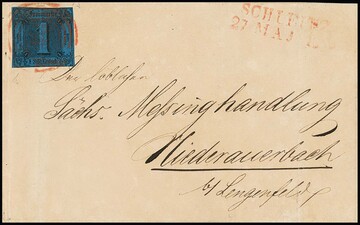 1
SCHLEIZ
27 MAJ
Der löblichen
Sächs. Messinghandlung
Niederauerbach
b/ Lengenfeld